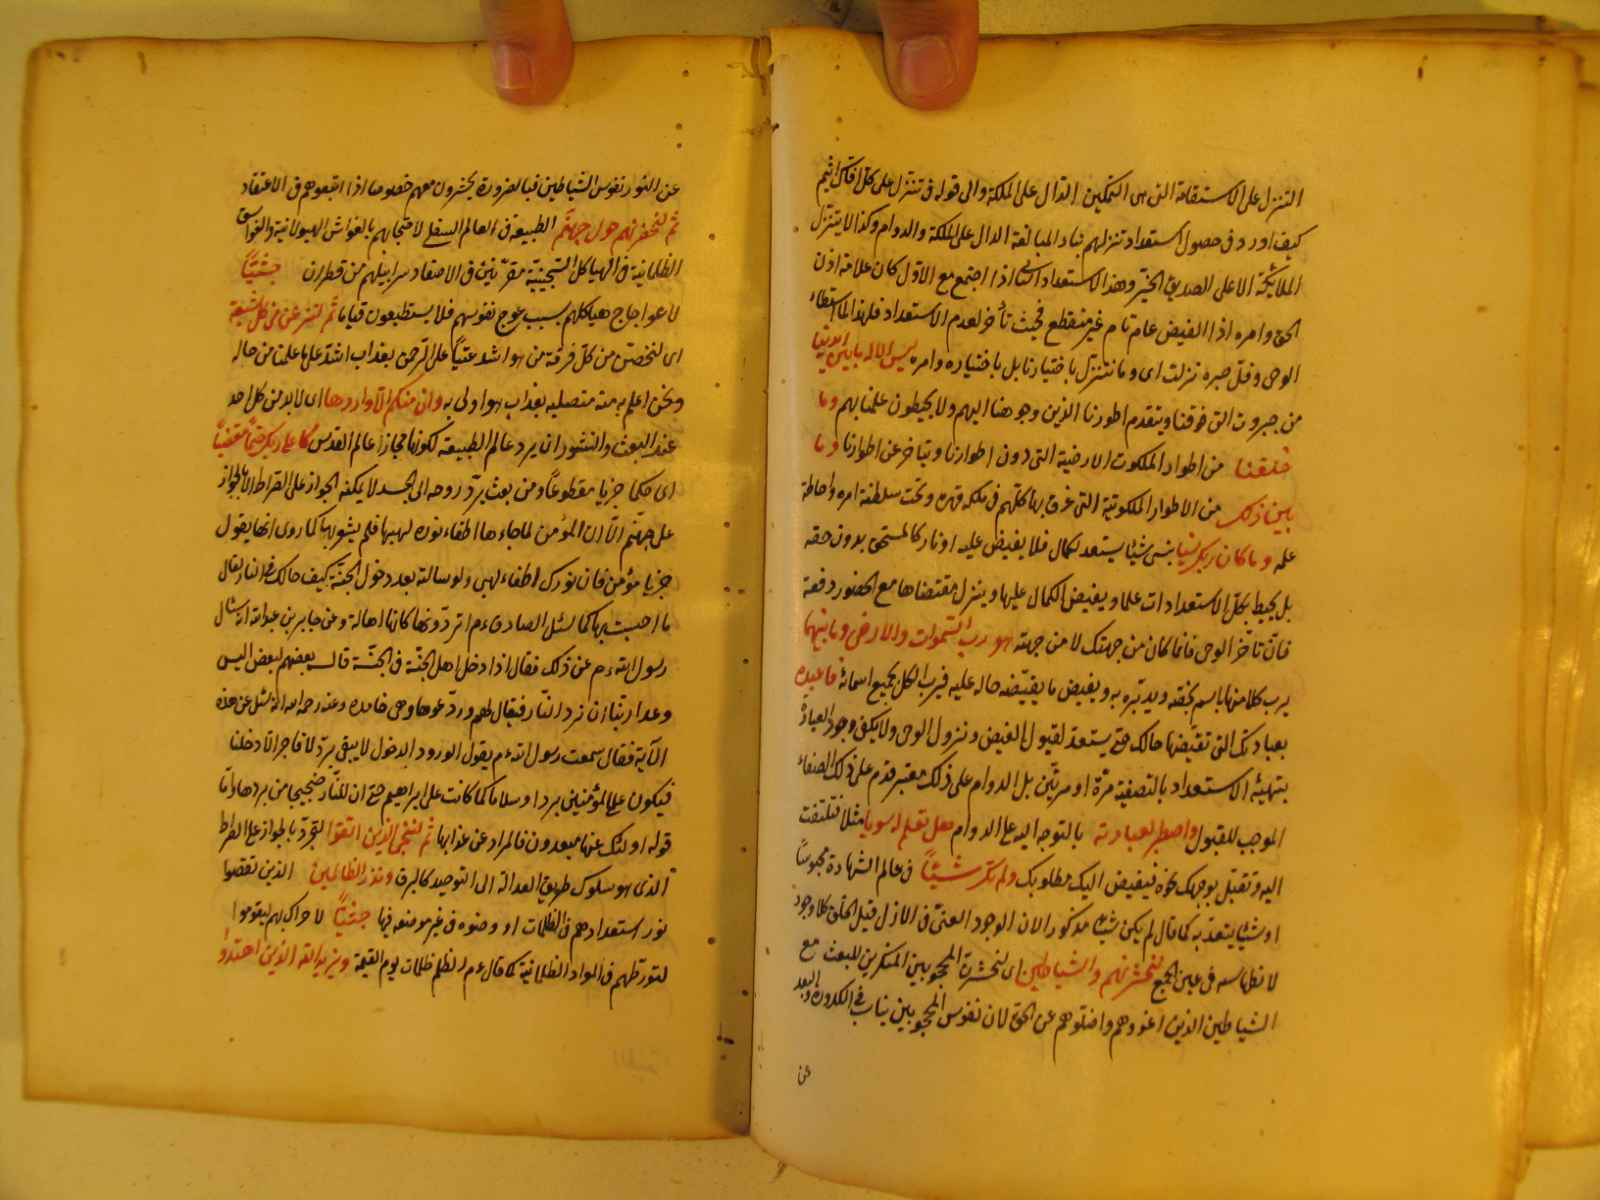 التنزل على الاستقامة التى هى التمكين الدال على الملكة والى قوله فى تنزل على كل افاك اثيم
كيف اورد فى حصول استعداد تنزلهم بناء المبالغة الدال على الملكة والدوام وكذا لا يتنزل
الملائكة الا على الصديق الخير وهذا الاستعداد الثانى اذا اجتمع مع الاول كان علامة اذن
الحق وامره اذا الفيض عام تام غير منقطع فحيث تأخر لعدم الاستعداد فلهذا لما استبطاء
الوحى وقل صبره نزلت اى وما نتنزل باختيارنا بل باختياره وامره ليس الا له ما بين ايدينا
من جبروت التى فوقنا ويتقدم اطورنا الذين وجوهنا اليهم ولا يحيطون علمنا بهم وما
خلفنا من اطوار الملكوت الارضية التى دون اطوارنا ويتأخر عن اطوارنا وما
بين ذلك من الاطوار الملكوتية التى نحن بها كلهم فى ملكه قهره وتحت سلطنة امره واحاطة
علمه وما كان ربك نسيا ينسى شيئا يستعد لكمال فلا يفيض عليه او تاركا لمستحق بدون حقه
بل يحيط بكل الاستعدادات علما ويفيض الكمال عليها وينزل مقتضاها مع الحضور دفعة
فان تأخر الوحى فانما كان من جهتك لا من جهته هو رب السموات والارض وما بينهما
يرب كلا منها باسم يخصه ويدبره به ويفيض ما يقتضيه حاله عليه فيرب الكل بجميع اسمائه فاعبده
بعبادتك التى تقتضيها حالك حتى يستعد لقبول الفيض ونزول الوحى ولا يكفى وجود العبادة
بتهيئة الاستعداد بالتصفية مرة او مرتين بل الدوام على ذلك معتبر فدم على ذلك الصفاء
الموجب للقبول واصطبر لعبادته بالتوجه اليه على الدوام هل تعلم له سميا مثلا فتلتفت
اليه وتقبل بوجهك نحوه فيفيض اليك مطلوبك ولم يك شيئا فى عالم الشهادة محسوسا
او شيئا يتعد به كما قال لم يكن شيئا مذكورا لان الوجود العينى فى الازل قبل الخلق كلا وجود
لانطماسه فى عين الجمع لنحشرنهم والشياطين اى لنحشرن المحجوبين المنكرين للبعث مع
الشياطين الذين اغووهم واضلوهم عن الحق لان نفوس المحجوبين يناسب فى الكدورة والبعد
عن
عن النور نفوس الشياطين فبالضرورة يحشرون معهم خصوصا اذا اتبعوهم فى الاعتقاد
ثم لنحضرنهم حول جهنم الطبيعة فى العالم السفلى لاحتجابهم بالغواشى الهيولانية والغواسق
الظلمانية فى الهياكل السجينية مقرنين فى الاصفاد سرابيلهم من قطران جثيا
لاعوجاج هياكلهم بسبب عوج نفوسهم فلا يستطيعون قياما ثم لننزعن من كل شيعة
اى لنخصن من كل فرقة من هو اشد عتيا على الرحمن بعذاب اشد على ما علمنا من حاله
ونحن اعلم به منه متصليه بعذاب هو اولى به وان منكم الا واردها اى لا بد من كل احد
عند البعث والنشور ان يرد عالم الطبيعة لكونها مجازا عالم القدس كان على ربك حتما مقضيا
اى حكما جزيا مقطوعا ومن بعث برد روحه الى الجسد لا يمكنه الجواز على الصراط الا بالجواز
على جهنم الا ان المؤمن لما جاءها اطفاء نوره لهيبها فلم يشعر بها كما روى انها يقول
جز يا مؤمن فان نورك اطفاء لهبى ولو سالته بعد دخول الجنة كيف حالك فى النار لقال
ما احسست بها كما سئل الصادق ءم اتردونها كانها اهالة وعن جابر بن عبد الله انه سال
رسول الله ءم عن ذلك فقال اذا دخل اهل الجنة فى الجنة قال بعضهم لبعض اليس
وعدا ربنا ان نرد النار فيقال لهم وردتموها وهى خامدة وعنه رحمه الله انه سئل عن هذه
الآية فقال سمعت رسول الله ءم يقول الورود الدخول لا يبقى بر ولا فاجر الا دخلها
فيكون على المؤمنين بردا وسلاما كما كانت على ابراهيم حتى ان للنار ضجيجا من بردها واما
قوله اولئك عنها مبعدون فالمراد عن عذابها ثم ننجى الذين اتقوا التجرد بالجواز على الصراط
الذى هو سلوك طريق العدالة الى التوحيد كالبرق ونذر الظالمين الذين نقصوا
نور استعدادهم فى الظلمات او وضعوه فى غير موضعه فيها جثيا لا حراك بهم ليقوموا
لتورطهم فى المواد الظلمانية كما قال ءم الظلم ظلمات يوم القيمة ويزيد الله الذين اهتدوا